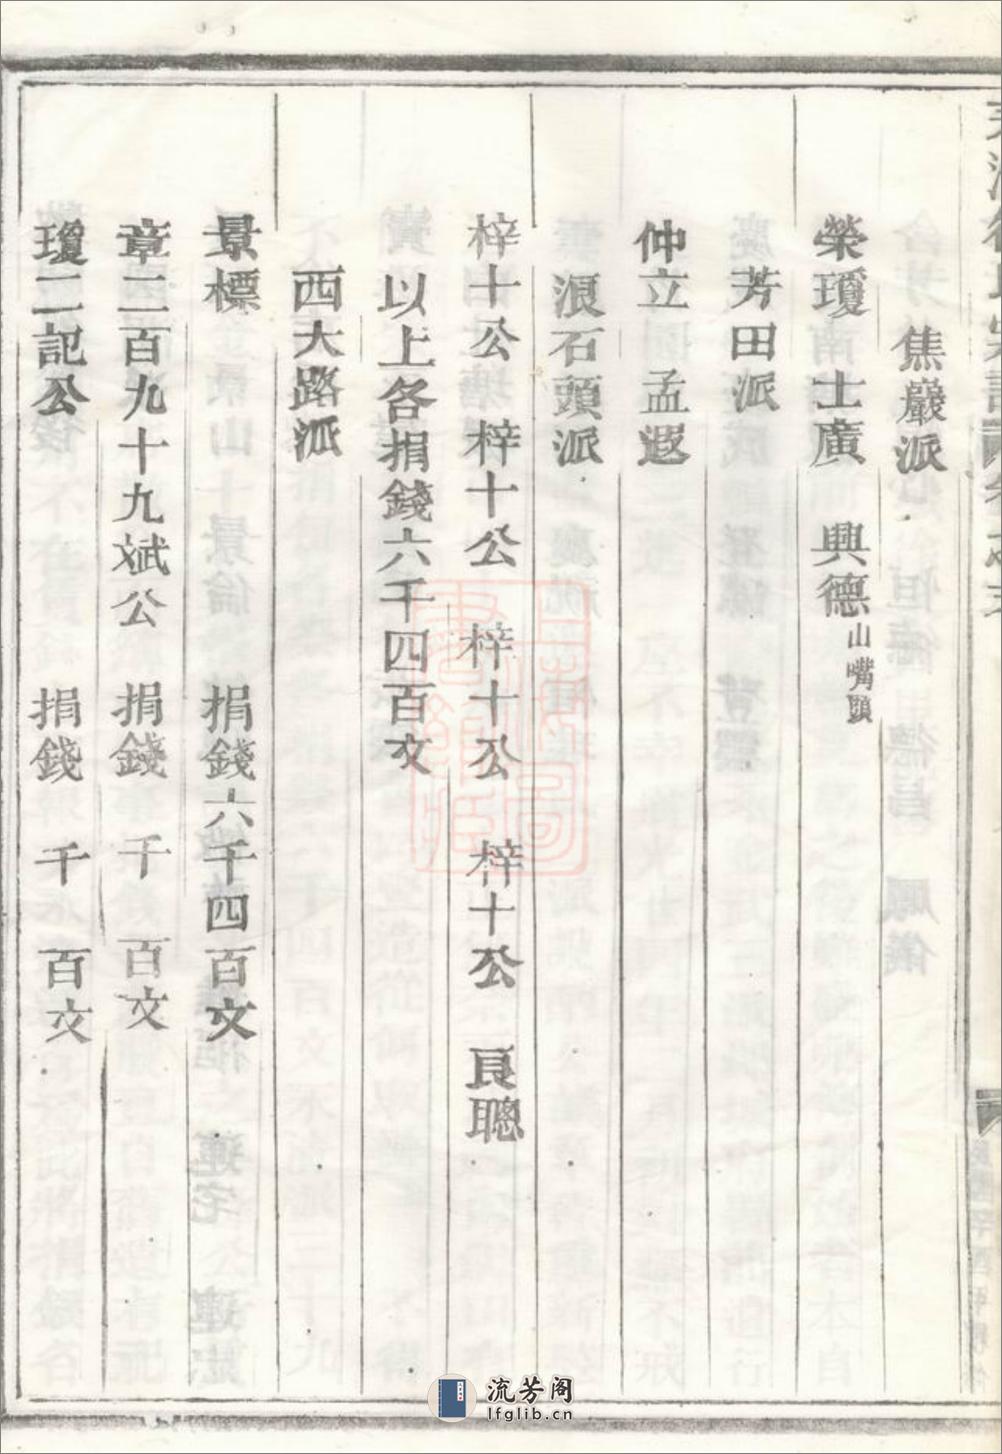 焦巖派
榮瓊 士廣 興德山嘴頭
芳田派
仲立 孟遐
浪石頭派
梓十公 梓十公 梓十公 梓十公 良聰
以上各捐錢六千四百文
西大路派
景標 捐錢六千四百文
章二百九十九斌公 捐錢 千 百文
瓊二記公 捐錢 千 百文
流芳阁
lfglib.cn